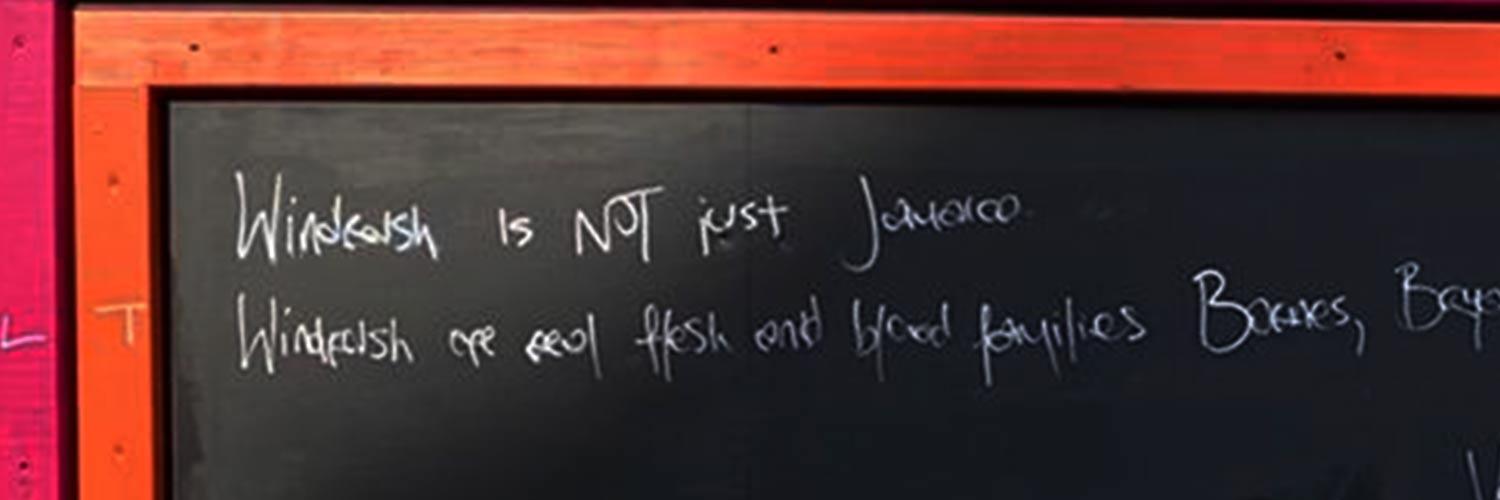 Windrush Is NOT just Jamaica
Windrush are real flesh and blood families Barnes,